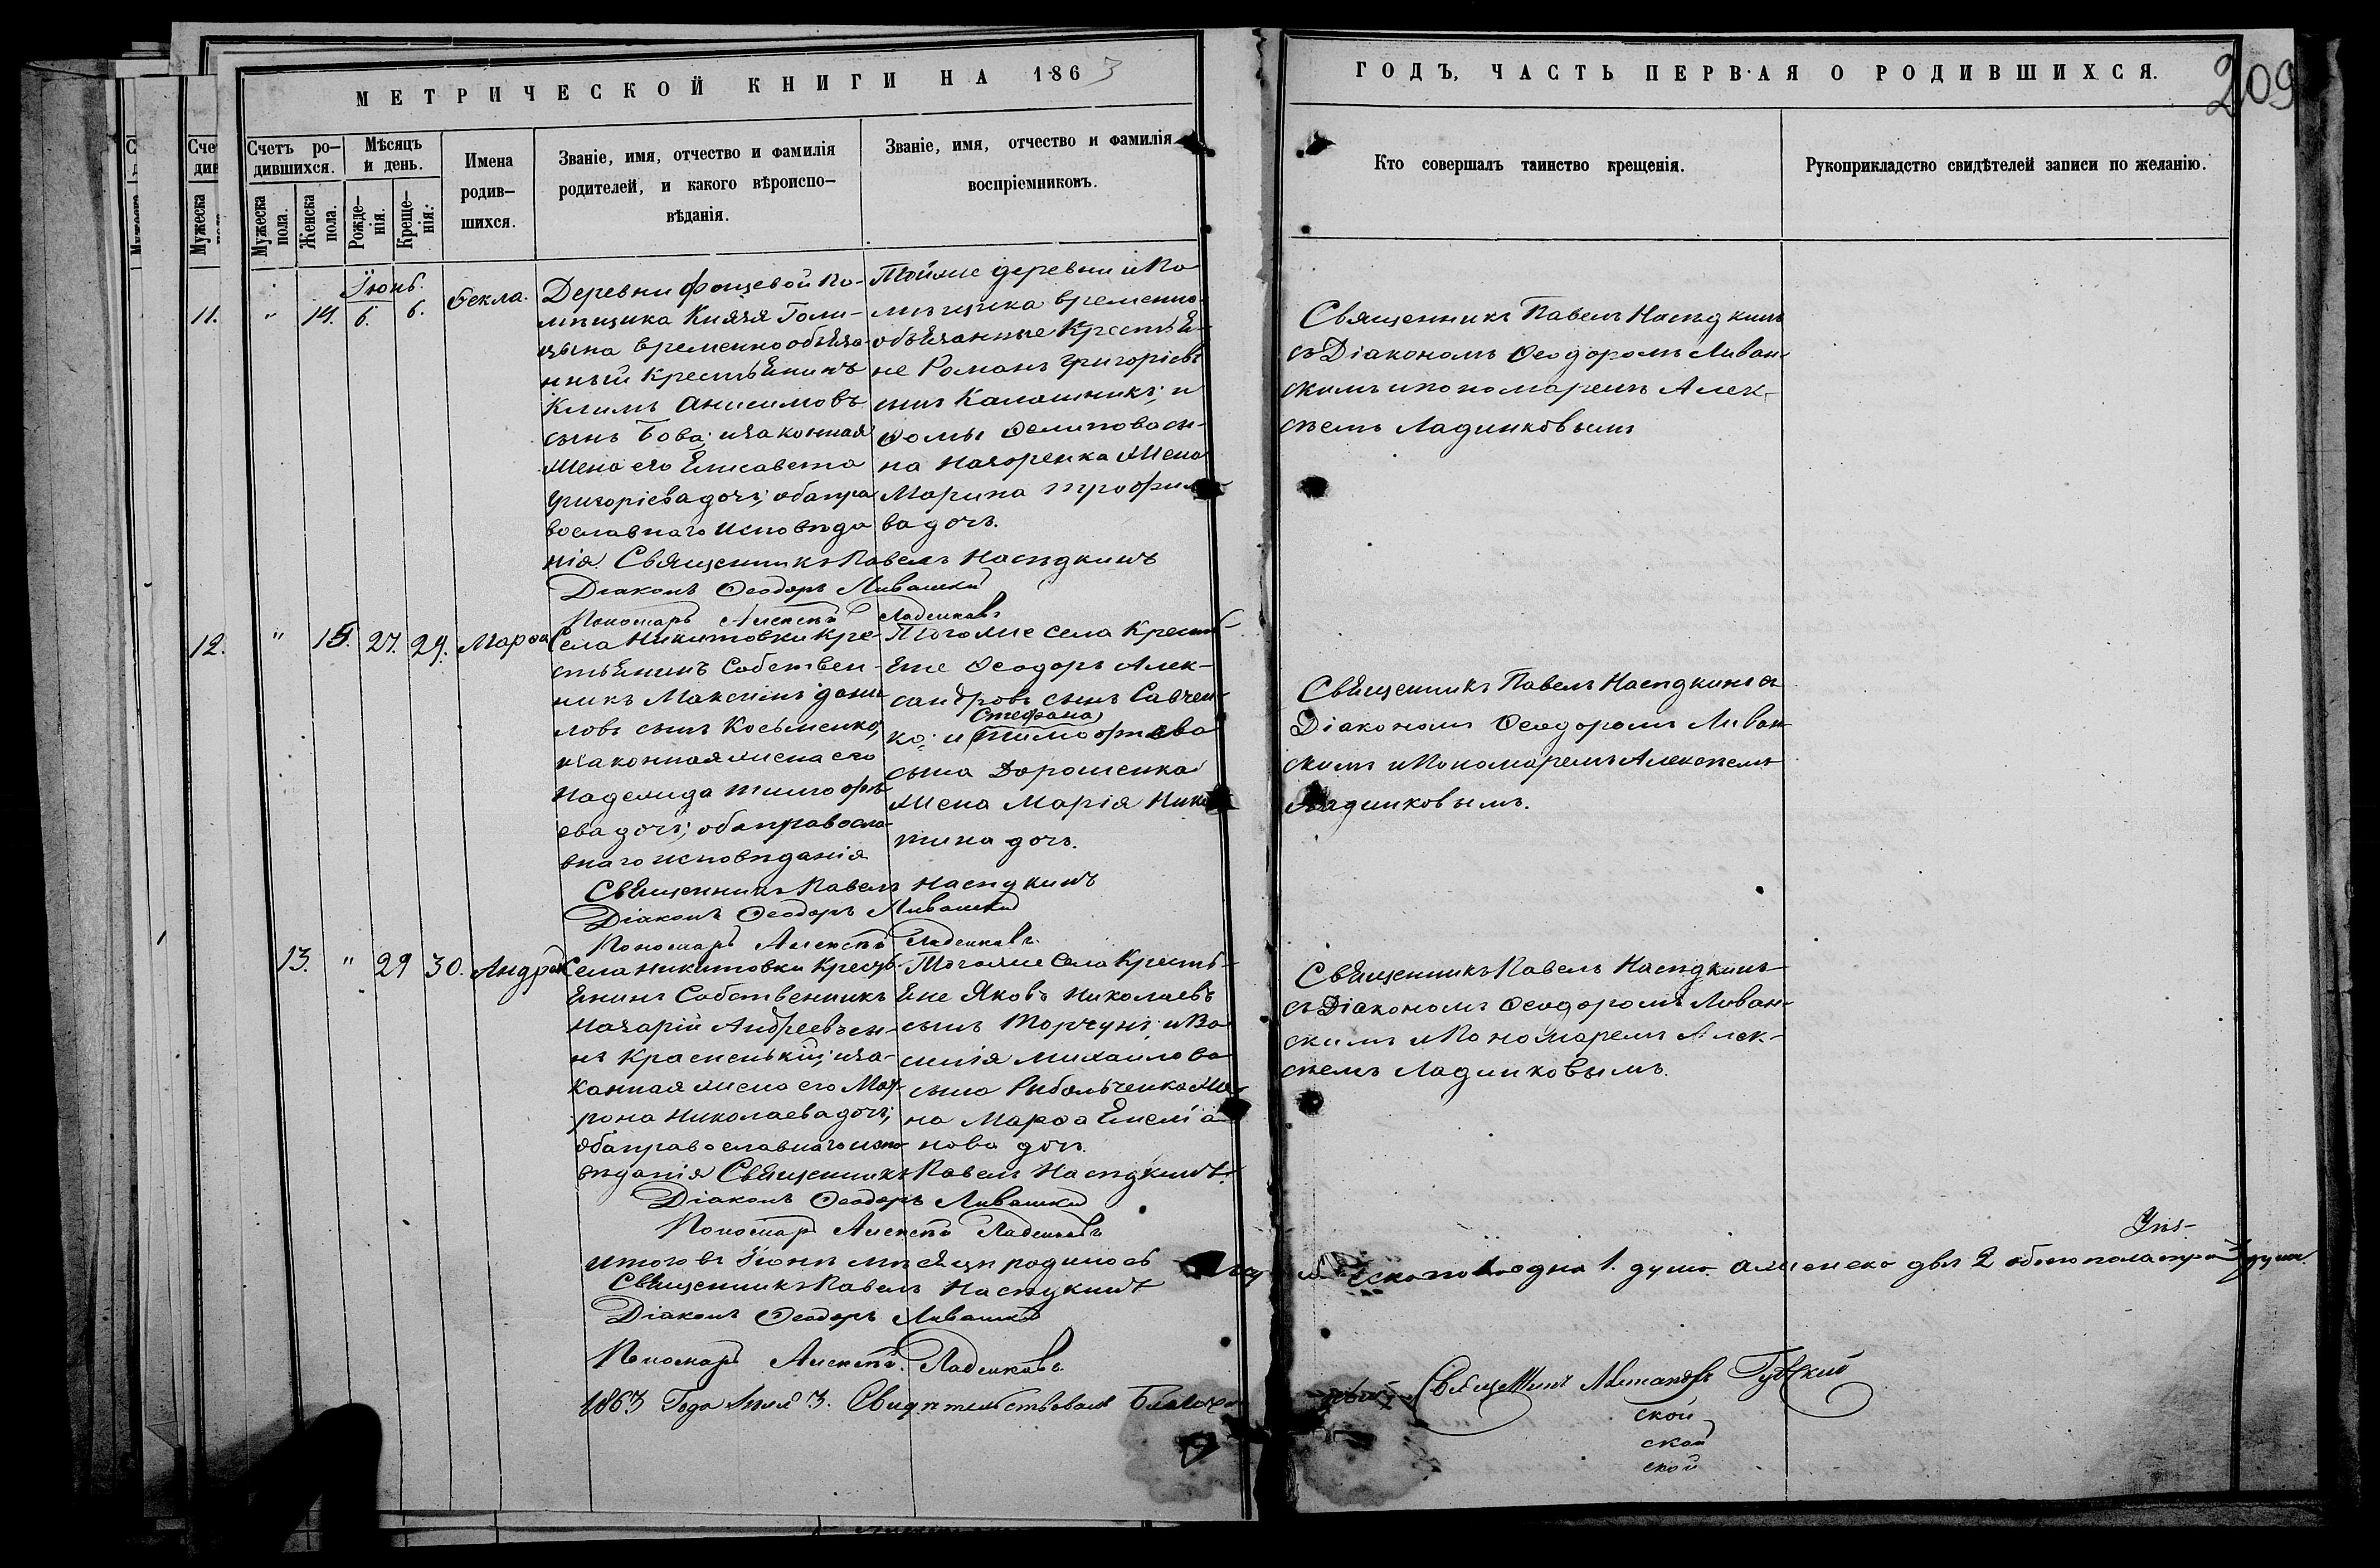 МЕТРИЧЕСКОЙ КНИГИ НА 1863
ГОДЪ, ЧАСТЬ ПЕРВАЯ О РОДИВШИХСЯ.
209
Счетъ ро-
дившихся.
Мужеска
пола.
Женска
пола.
Мѣсяцъ
и день.
Рожде-
нія.
Креще-
нія.
Имена
родив-
шихся.
Званіе, имя, отчество и фамилія
родителей, и какого вѣроиспо-
вѣданія.
Званіе, имя, отчество и фамилія
воспріемниковъ.
Кто совершалъ таинство крещенія.
Рукоприкладство свидѣтелей записи по желанію.
Іюнь.
11.
" 14. 6. 6. Ѳекла.
Деревни По-
мѣщика Князя Голи-
цына временнообяза-
нный крестьянинъ
Климъ Анисимовъ
сынъ Бова; и законная
жена его Елисавета
Григоріева дочь; оба пра
вославнаго исповѣда
нія. Священникъ Павелъ Насѣдкинъ
Діаконъ Ѳеодоръ Ливанскій
Пономарь Алексѣй Ладенковъ
Тойже деревни и По
мѣщика временно-
обязанные Крестья-
не Романъ Григоріевъ
сынъ Калашникъ; и
Ѳомы Филипова сы-
на Назаренка жена
Марина Трофимо
ва дочь.
Священникъ Павелъ Насѣдкинъ
съ Діакономъ Ѳеодоромъ Ливан-
скимъ и пономаремъ Алек-
сѣемъ Ладинковымъ
12.
" 15. 27. 29. Марѳа
Села Никитовки кре-
стьянинъ Собствен-
никъ Максимъ Дани
ловъ сынъ Косьменко;
и законная жена его
Надежда Тимоѳѣ-
ева дочь; оба правосла-
внаго исповѣданія
Священникъ Павелъ Насѣдкинъ
Діаконъ Ѳеодоръ Ливанскій
Пономарь Алексѣй Ладенковъ
Тогоже села Кресть-
яне Ѳеодоръ Алек-
сандровъ сынъ Савчен-
Стефана
ко; и Тимофѣева
сына Дорошенка
жена Марія Ники
тина дочь.
Священникъ Павелъ Насѣдкинъ съ
Діакономъ Ѳеодоромъ Ливан-
скимъ и Пономаремъ Алексѣемъ
Ладинковымъ.
13. " 29 30. Андрей
Села Никитовки Кресть-
янинъ Собственникъ
Назарій Андреевъ сы-
нъ Красненькій; и за-
конная жена его Мат-
рона Николаева дочь;
оба православнаго испо-
вѣданія Священникъ Павелъ Насѣдкинъ
Діаконъ Ѳеодоръ Ливанскій
Пономарь Алексѣй Ладенковъ
Тогоже Села Кресть-
яне Яковъ Николаевъ
сынъ Торчунъ; и Ва
силія Михаилова
сына Рыбальченка же-
на Марѳа Емеліа
нова дочь.
Священникъ Павелъ Насѣдкинъ
съ Діакономъ Ѳеодоромъ Ливан-
скимъ и Пономаремъ Алек-
сѣемъ Ладинковымъ.
Итого въ Іюнѣ мѣсяцѣ родилось одна 1. душа. а женска двѣ 2 обоего пола три 3 души.
Священникъ Павелъ Насѣдкинъ
Діаконъ Ѳеодоръ Ливанскій
Пономарь Алексѣй Ладенковъ
1863 Года Іюля 3. Свидѣтельствовалъ Благочин
ный Священникъ Александръ
ской
ской
ской